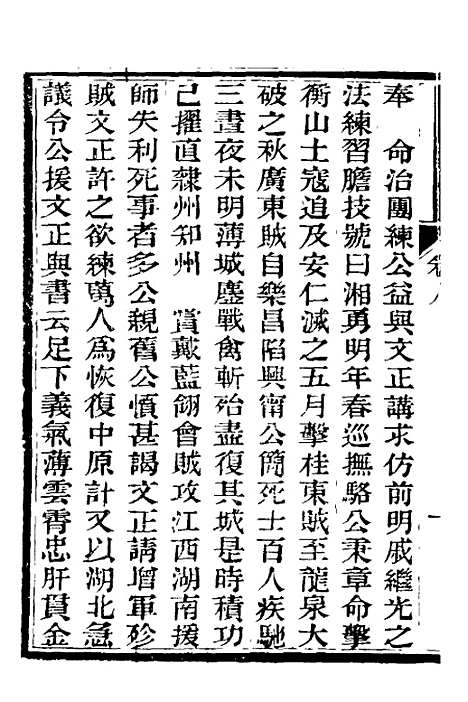 奉　命治團練公益與文正講求仿前明戚繼光之
法練習膽技號曰湘勇明年春巡撫駱公秉章命擊
衡山土寇追及安仁滅之五月擊桂東賊至龍泉大
破之秋廣東賊自樂昌陷興甯公簡死士百人疾馳
三晝夜未明薄城鏖戰禽斬殆盡復其城是時積功
已擢直隸州知州　賞戴藍翎會賊攻江西湖南援
師失利死事者多公親舊公憤甚謁文正請增軍殄
賊文正許之欲練萬人爲恢復中原計又以湖北急
議令公援文正與書云足下義氣薄雲霄忠肝貫金